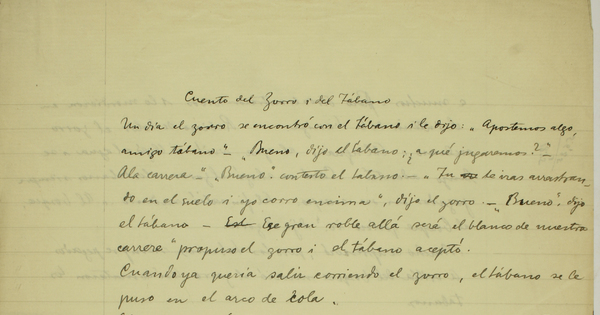 Cuento del Zorro i del Tábano
Un dia el zorro se encontró con el Tábano i le dijo: „Apostemos algo,
amigo tábano" – „Bueno, dijo el tabano; ¿a qué jugaremos?" –
A la carrera –" „Bueno". contestó el tabano. – „Tu te irás arrastran-
do en el suelo i yo corro encima", dijo el zorro. – „Bueno". dijo
el tábano – Est Ese gran roble allá será el blanco de nuestra
carrera" propuso el zorro i el tábano aceptó.
Cuando ya queria salir corriendo el zorro, el tábano se le
puso en el arco de cola.